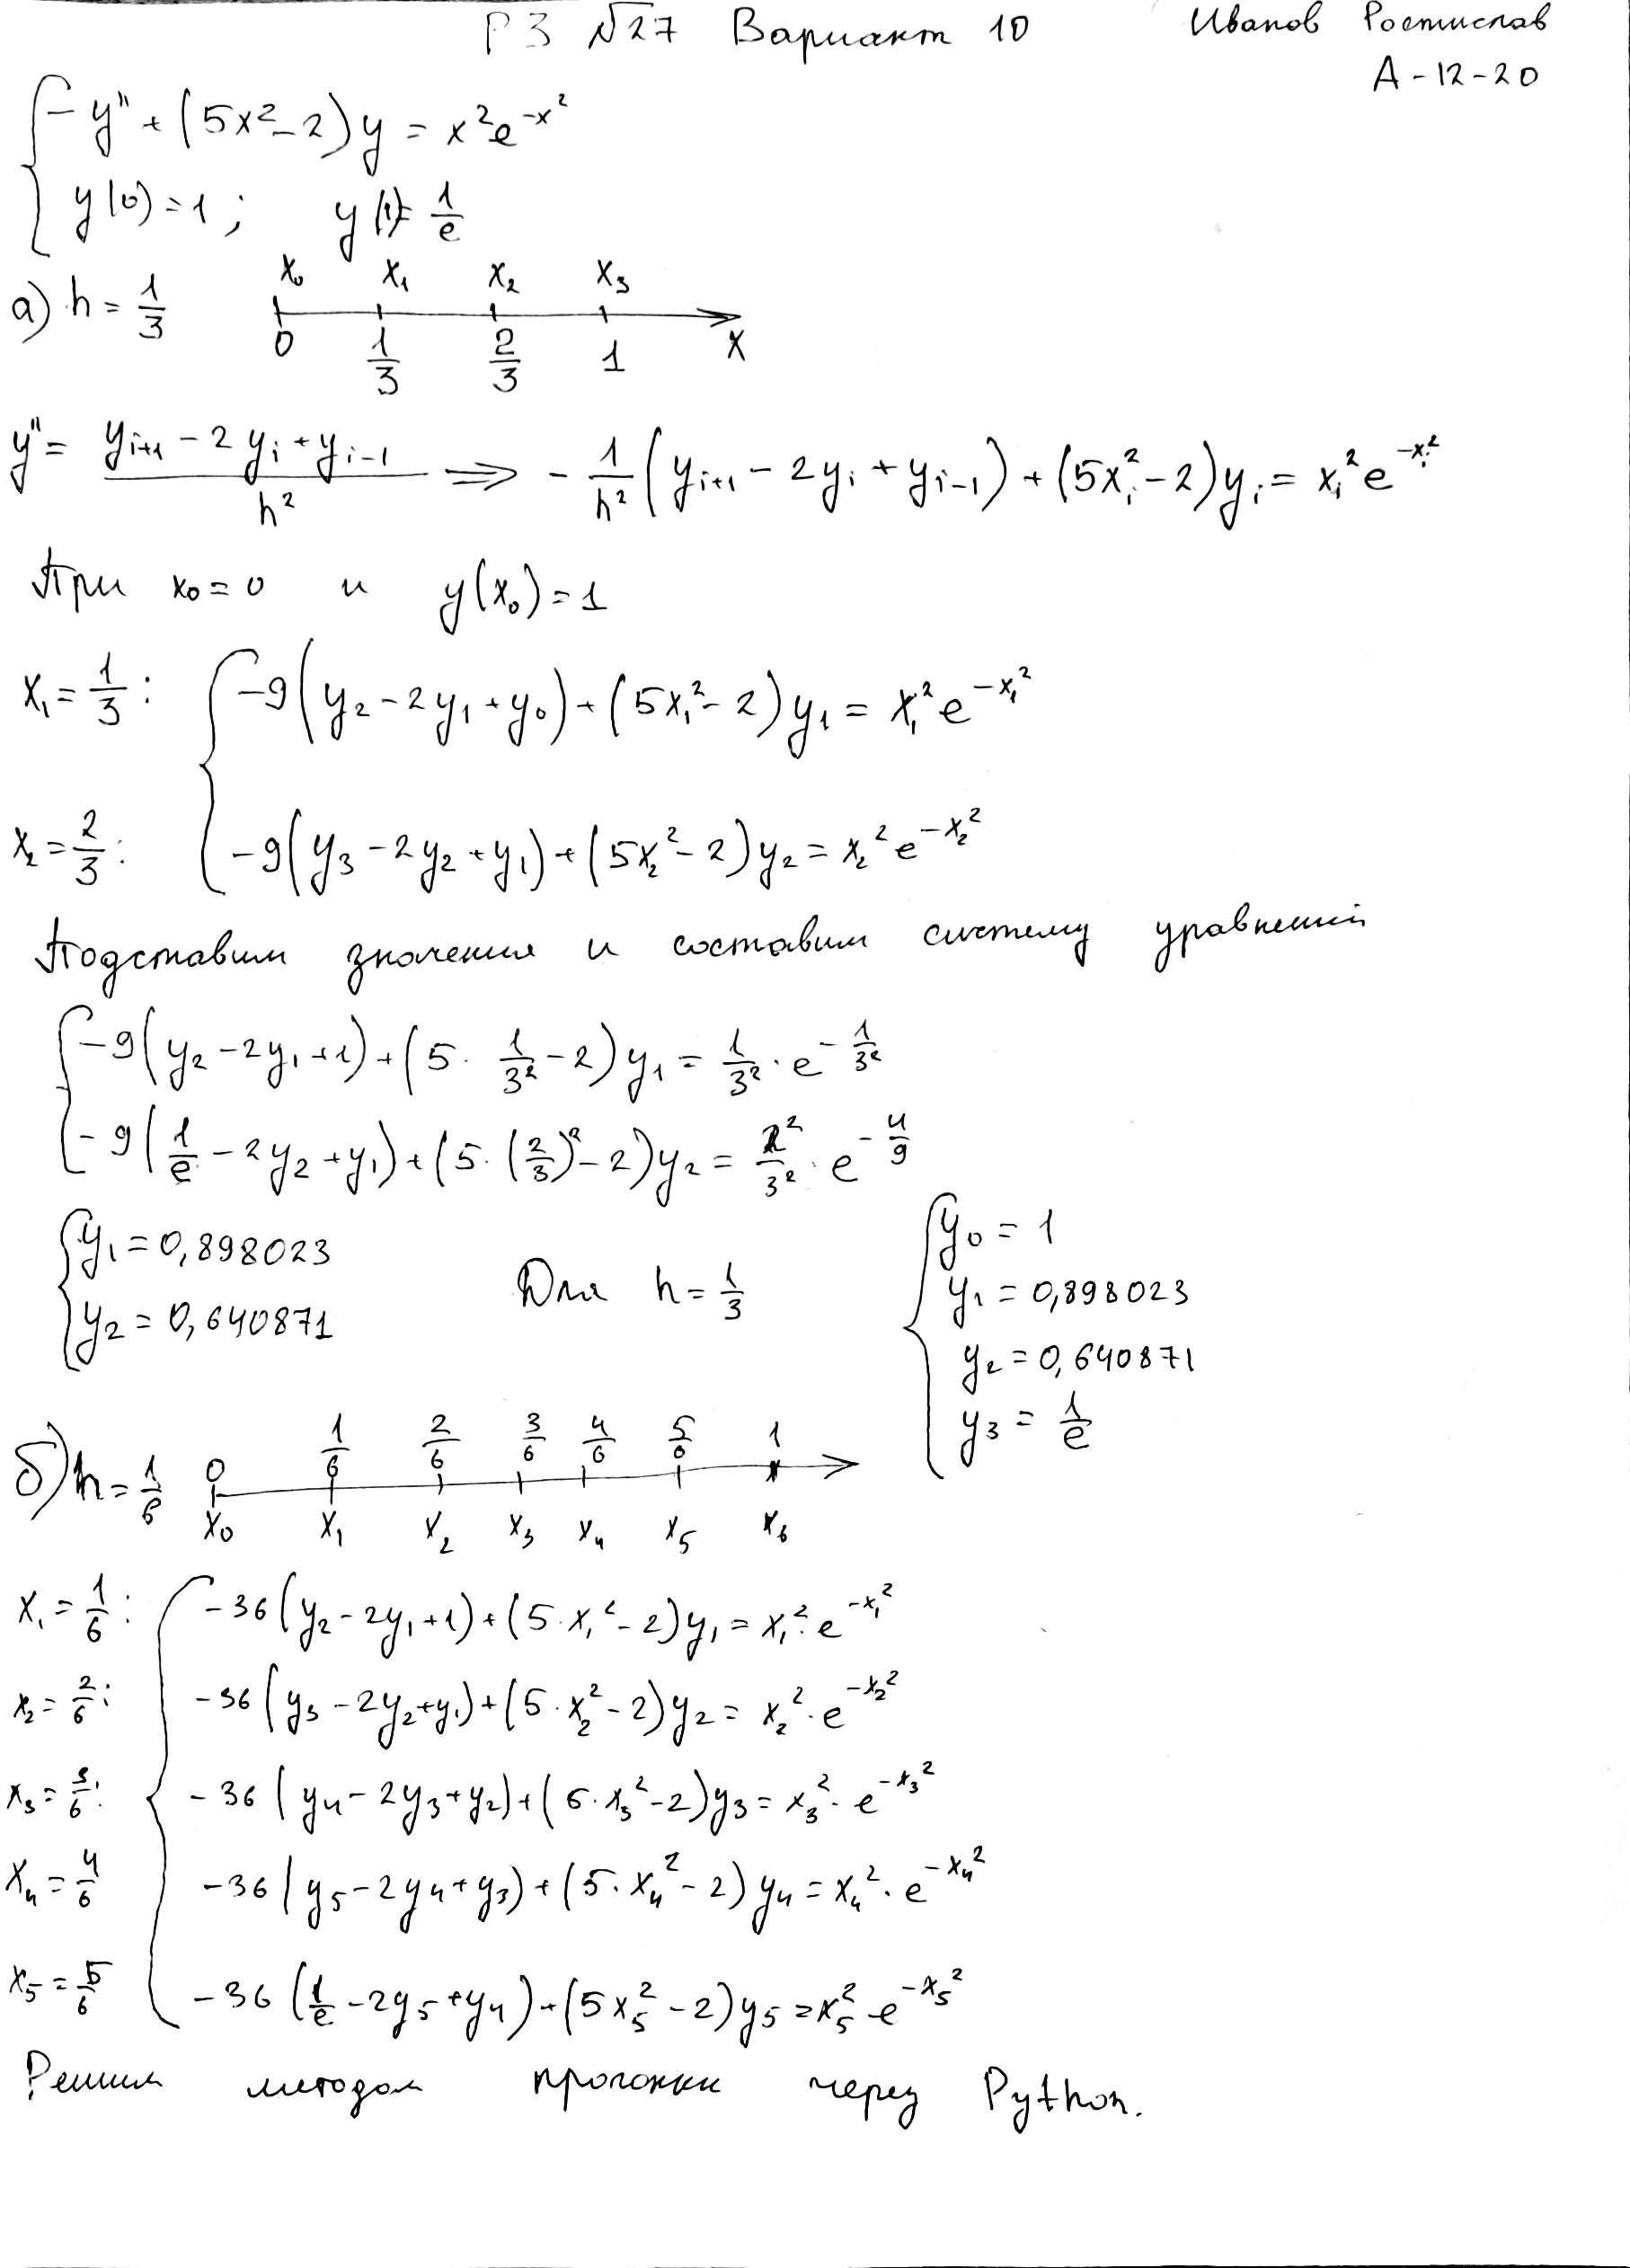 РЗ №27 Вариант 10 Иванов Ростислав
А-12-20
{ -y'' + (5x² - 2)y = x²e^(-x²)
y(0) = 1; y(1) = 1/e
а) h = 1/3 x₀ x₁ x₂ x₃
0 1/3 2/3 1 x
y'' = (yᵢ₊₁ - 2yᵢ + yᵢ₋₁)/h² ⟹ -1/h² (yᵢ₊₁ - 2yᵢ + yᵢ₋₁) + (5xᵢ² - 2)yᵢ = xᵢ²e^(-xᵢ²)
При x₀ = 0 и y(x₀) = 1
x₁ = 1/3: { -9(y₂ - 2y₁ + y₀) + (5x₁² - 2)y₁ = x₁²e^(-x₁²)
x₂ = 2/3: -9(y₃ - 2y₂ + y₁) + (5x₂² - 2)y₂ = x₂²e^(-x₂²)
Подставим значения и составим систему уравнений
{ -9(y₂ - 2y₁ + 1) + (5 · 1/3² - 2)y₁ = 1/3² · e^(-1/3²)
-9(1/e - 2y₂ + y₁) + (5 · (2/3)² - 2)y₂ = 2²/3² · e^(-4/9)
{ y₁ = 0,898023
y₂ = 0,640871
Для h = 1/3
{ y₀ = 1
y₁ = 0,898023
y₂ = 0,640871
y₃ = 1/e
б) h = 1/6 0 1/6 2/6 3/6 4/6 5/6 1
x₀ x₁ x₂ x₃ x₄ x₅ x₆
x₁ = 1/6: { -36(y₂ - 2y₁ + 1) + (5·x₁² - 2)y₁ = x₁²·e^(-x₁²)
x₂ = 2/6: -36(y₃ - 2y₂ + y₁) + (5·x₂² - 2)y₂ = x₂²·e^(-x₂²)
x₃ = 3/6: -36(y₄ - 2y₃ + y₂) + (5·x₃² - 2)y₃ = x₃²·e^(-x₃²)
x₄ = 4/6 -36(y₅ - 2y₄ + y₃) + (5·x₄² - 2)y₄ = x₄²·e^(-x₄²)
x₅ = 5/6 -36(1/e - 2y₅ + y₄) + (5x₅² - 2)y₅ = x₅²·e^(-x₅²)
Решим методом прогонки через Python.